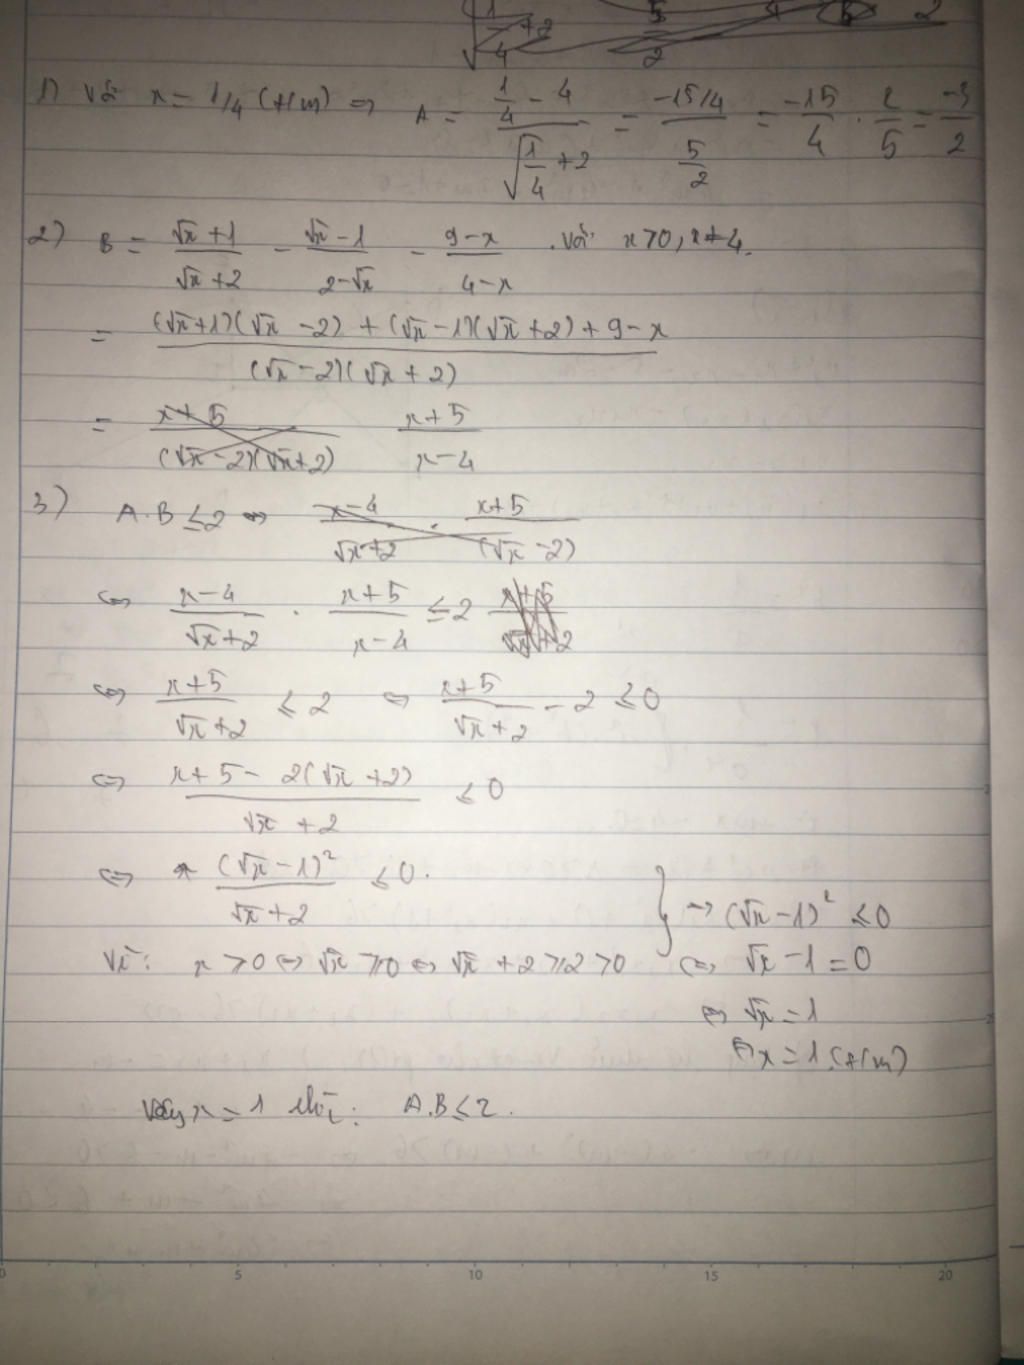 1) Với x = 1/4 (t/m) => A = (1/4 - 4)/(√(1/4) + 2) = (-15/4)/(5/2) = -15/4 . 2/5 = -3/2
2) B = (√x + 1)/(√x + 2) - (√x - 1)/(2 - √x) - (9 - x)/(4 - x) . với x > 0, x ≠ 4.
= ((√x + 1)(√x - 2) + (√x - 1)(√x + 2) + 9 - x)/((√x - 2)(√x + 2))
= (x + 5)/((√x - 2)(√x + 2)) (x + 5)/(x - 4)
3) A.B ≤ 2 <=> (x - 4)/(√x + 2) . (x + 5)/(√x - 2)
<=> (x - 4)/(√x + 2) . (x + 5)/(x - 4) ≤ 2 (x + 5)/(√x + 2)
<=> (x + 5)/(√x + 2) ≤ 2 <=> (x + 5)/(√x + 2) - 2 ≤ 0
<=> (x + 5 - 2(√x + 2))/(√x + 2) ≤ 0
<=> (√x - 1)²/(√x + 2) ≤ 0.
=> (√x - 1)² ≤ 0
Vì: x > 0 <=> √x ≥ 0 <=> √x + 2 ≥ 2 > 0 <=> √x - 1 = 0
<=> √x = 1
<=> x = 1 (t/m)
Vậy x = 1 thì: A.B ≤ 2.
0 5 10 15 20